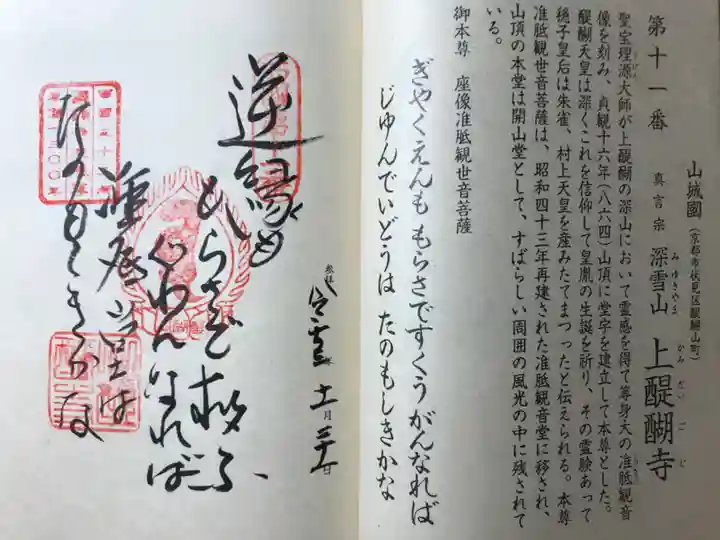 第十一番
山城國(京都市伏見区醍醐山町)
真言宗 深雪山 上醍醐寺
みゆきやま かみだいごじ
聖宝理源大師が上醍醐の深山において霊感を得て等身大の准胝観音
像を刻み、貞観十六年(八六四)山頂に堂宇を建立して本尊とした。
醍醐天皇は深くこれを信仰して皇胤の生誕を祈り、その霊験あって
穏子皇后は朱雀、村上天皇を産みたてまつったと伝えられる。本尊
准胝観世音菩薩は、昭和四十三年再建された准胝観音堂に移され、
山頂の本堂は開山堂として、すばらしい周囲の風光の中に残されて
いる。
御本尊 座像准胝観世音菩薩
ぎやくえんも もらさですくう がんなれば
じゆんでいどうは たのもしきかな
参拝
十一月三十日
逆縁も
もらさで救ふ
ぐわんなれば
准胝堂は
たのもしきかな